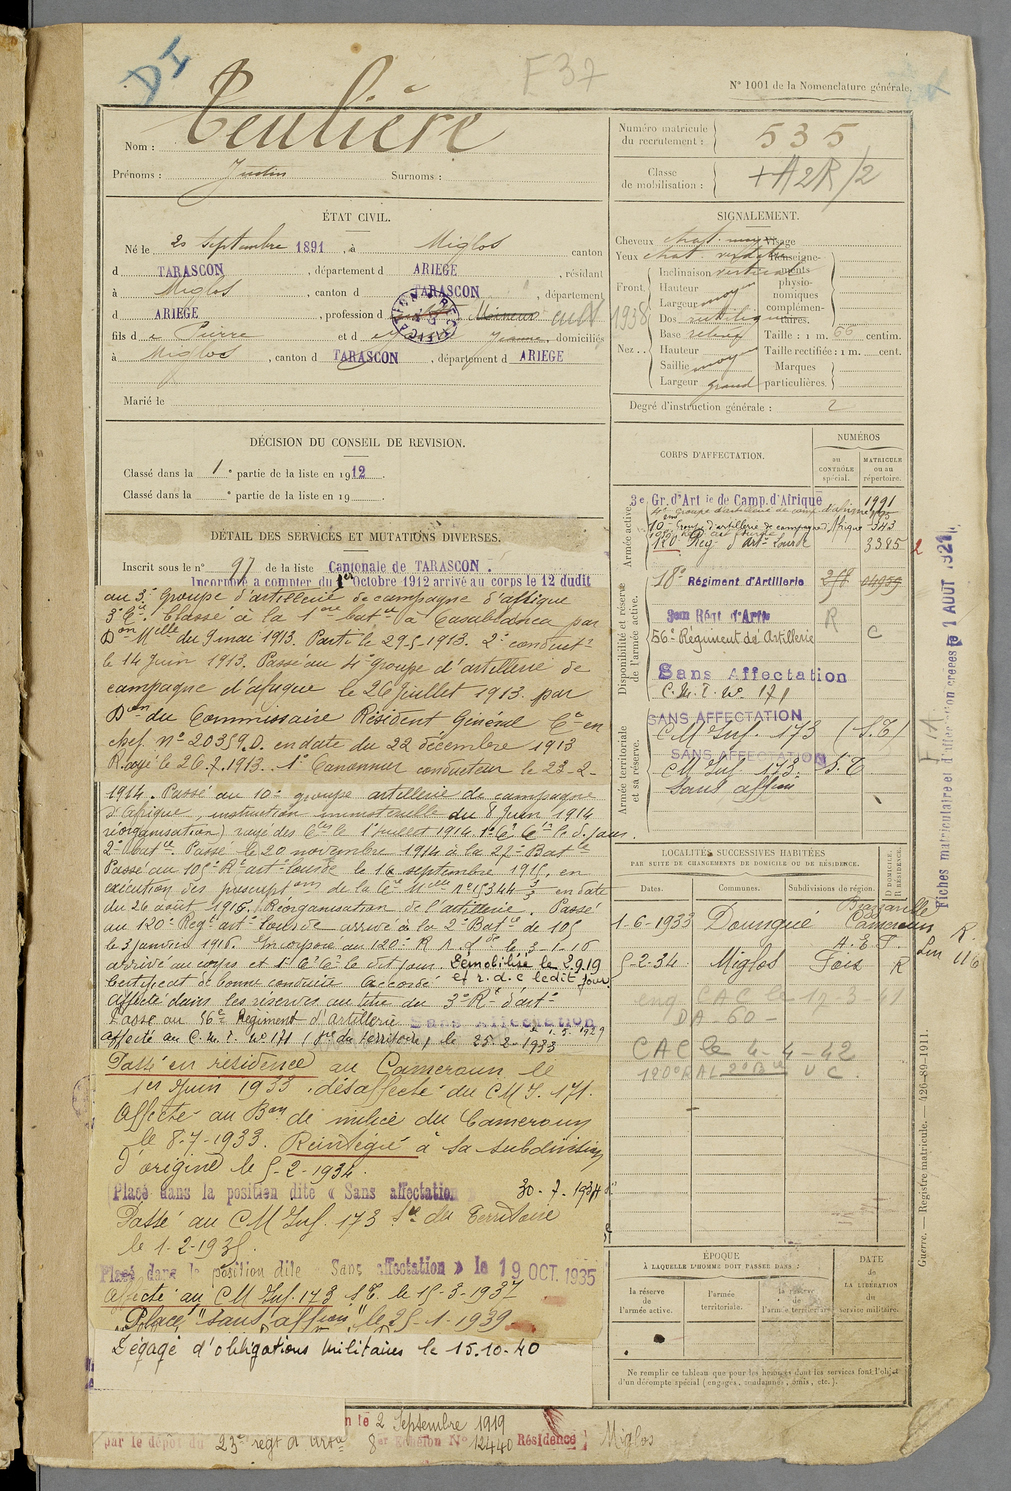 DI
F37
N° 1001 de la Nomenclature générale.
Nom : Teulière
Prénoms : Justin Surnoms :
Numéro matricule du recrutement : 535
Classe de mobilisation : +A2R/2
ÉTAT CIVIL.
Né le 20 Septembre 1891, à Miglos canton
d TARASCON, département d ARIEGE, résidant
à Miglos, canton d TARASCON, département
d ARIEGE, profession d cult
fils d e Pierre et d e Jeanne, domiciliés
à Miglos, canton d TARASCON, département d ARIEGE
Marié le
SIGNALEMENT.
Cheveux chat. Visage
Yeux chat. Renseigne-
Front. Inclinaison verticale ments
Hauteur physio-
Largeur moyen nomiques
1938
Nez.. Dos rectiligne complémen-taires.
Base relevé Taille : 1 m. 66 centim.
Hauteur Taille rectifiée : 1 m. cent.
Saillie moyen Marques
Largeur grand particulières.
Degré d'instruction générale : 2
DÉCISION DU CONSEIL DE REVISION.
Classé dans la 1e partie de la liste en 1912.
Classé dans la e partie de la liste en 19
DÉTAIL DES SERVICES ET MUTATIONS DIVERSES.
Inscrit sous le n° 97 de la liste Cantonale de TARASCON.
Incorporé a compter du 1er Octobre 1912 arrivé au corps le 12 dudit
au 3e Groupe d'artillerie de campagne d'afrique
3e Bie. Classé à la 1ere batie à Casablanca par
Don Melle du 9 mai 1913. Parti le 29-5-1913. 2e conductr
le 14 Juin 1913. Passé au 4e groupe d'artillerie de
campagne d'afrique le 26 juillet 1913 par
Don du Commissaire Résident Général Ct en
chef. N° 20359.D. en date du 22 décembre 1913
Rayé le 26.7.1913. 1er Canonnier conducteur le 23-2-
1914. Passé au 10e groupe artillerie de campagne
d'Afrique, instruction ministérielle du 8 Juin 1914
réorganisation) rayé des Cles le 1er juillet 1914. 1er Cr Cer le d. jour.
2e batie. Passé le 20 novembre 1914 à la 22e Batie
Passé au 105e Rt art. lourde le 16 septembre 1915, en
exécution des prescriptons de la Cre Melle N° 15344 3/3 en date
du 26 août 1915. (Réorganisation de l'artillerie. Passé
au 120e Régt artie lourde arrivé à la 2e Batie de 105
le 3 janvier 1916. Incorporé au 120e R A Lde le 3-1-16
arrivé au corps et 1er Cr Cer le dit jour. Démobilisé le 2.9.19
Certificat de bonne conduite Accordé et r.d.c ledit jour.
Affecté dans les réserves au titre du 3e Rt d'artie
Passé au 56e Régiment d'Artillerie Sans Affectation le 1.5.1929
affecté au C.M.I. N° 171 (Sce du territoire) le 25.2-1933
Passé en résidence au Cameroun le
1er Juin 1933. désaffecté du C M I. 171.
Affecté au Bon de milice du Cameroun
le 8-7-1933. Réintégré à sa subdivision
d'origine le 5-2-1934.
Placé dans la position dite « Sans affectation » 30-7-1934
Passé au C M Inf. 173 Sce du Territoire
le 1-2-1935.
Placé dans la position dite Sans affectation » le 19 OCT. 1935
Affecté au C M Inf. 173 S T. le 15-3-1937
Placé "Sans affion" le 25-1-1939
Dégagé d'obligations militaires le 15.10-40
n le 2 Septembre 1919
par le dépôt du 23e régt d'Artie 8er Echelon N° 12440 Résidence : Miglos
CORPS D'AFFECTATION.
NUMÉROS
au CONTRÔLE spécial.
MATRICULE ou au répertoire.
Armée active.
3e Gr. d'Art ie de Camp. d'Afrique 1991
4e groupe d'artillerie de camp. d'afrique
10eme Groupe d'artillerie de campagne d'Afrique 343
120e Régt d'Artie Lourde 3385 2
Disponibilité et réserve de l'armée active.
18e Régiment d'Artillerie
3eme Régt d'Artie R
56e Régiment de Artillerie C
Sans Affectation
C.M.I. N° 171
Armée territoriale et sa réserve.
SANS AFFECTATION
C M Inf. 173 (S.T)
SANS AFFECTATION
C M Inf 173. S.T
Sans affion
LOCALITÉS SUCCESSIVES HABITÉES
PAR SUITE DE CHANGEMENTS DE DOMICILE OU DE RÉSIDENCE.
Dates. Communes. Subdivisions de région. D DOMICILE. R RÉSIDENCE.
1-6-1933 Doumgué Brazzaville Cameroun A.E.F. R
5-2-34 Miglos Foix R
eng CAC le
DA-60-
CAC le 4-4-42
120e RAL 2e Bie U C.
ÉPOQUE
À LAQUELLE L'HOMME DOIT PASSER DANS :
DATE de LA LIBÉRATION du service militaire.
la réserve de l'armée active.
l'armée territoriale.
la réserve de l'armée territoriale.
Ne remplir ce tableau que pour les hommes dont les services font l'objet
d'un décompte spécial (engagés, condamnés, omis, etc.).
Guerre. — Registre matricule. — 426-89-1911.
Fiches matriculaire et d'affectation créées le 1 AOUT 1921